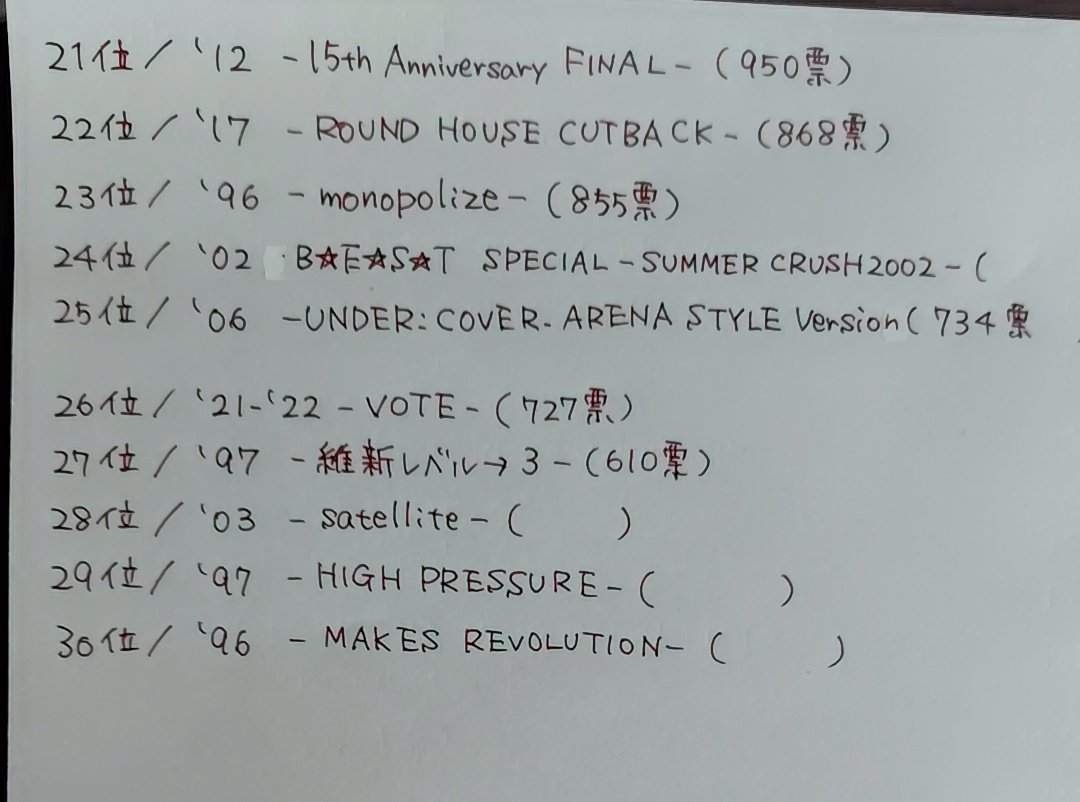 21位/ '12 -15th Anniversary FINAL- (950票)
22位/ '17 -ROUND HOUSE CUTBACK- (868票)
23位/ '96 -monopolize- (855票)
24位/ '02 B☆E☆S☆T SPECIAL -SUMMER CRUSH2002- (
25位/ '06 -UNDER:COVER- ARENA STYLE Version( 734票
26位/ '21-'22 -VOTE- (727票)
27位/ '97 -維新レベル→3- (610票)
28位/ '03 -satellite- ( )
29位/ '97 -HIGH PRESSURE- ( )
30位/ '96 -MAKES REVOLUTION- ( )